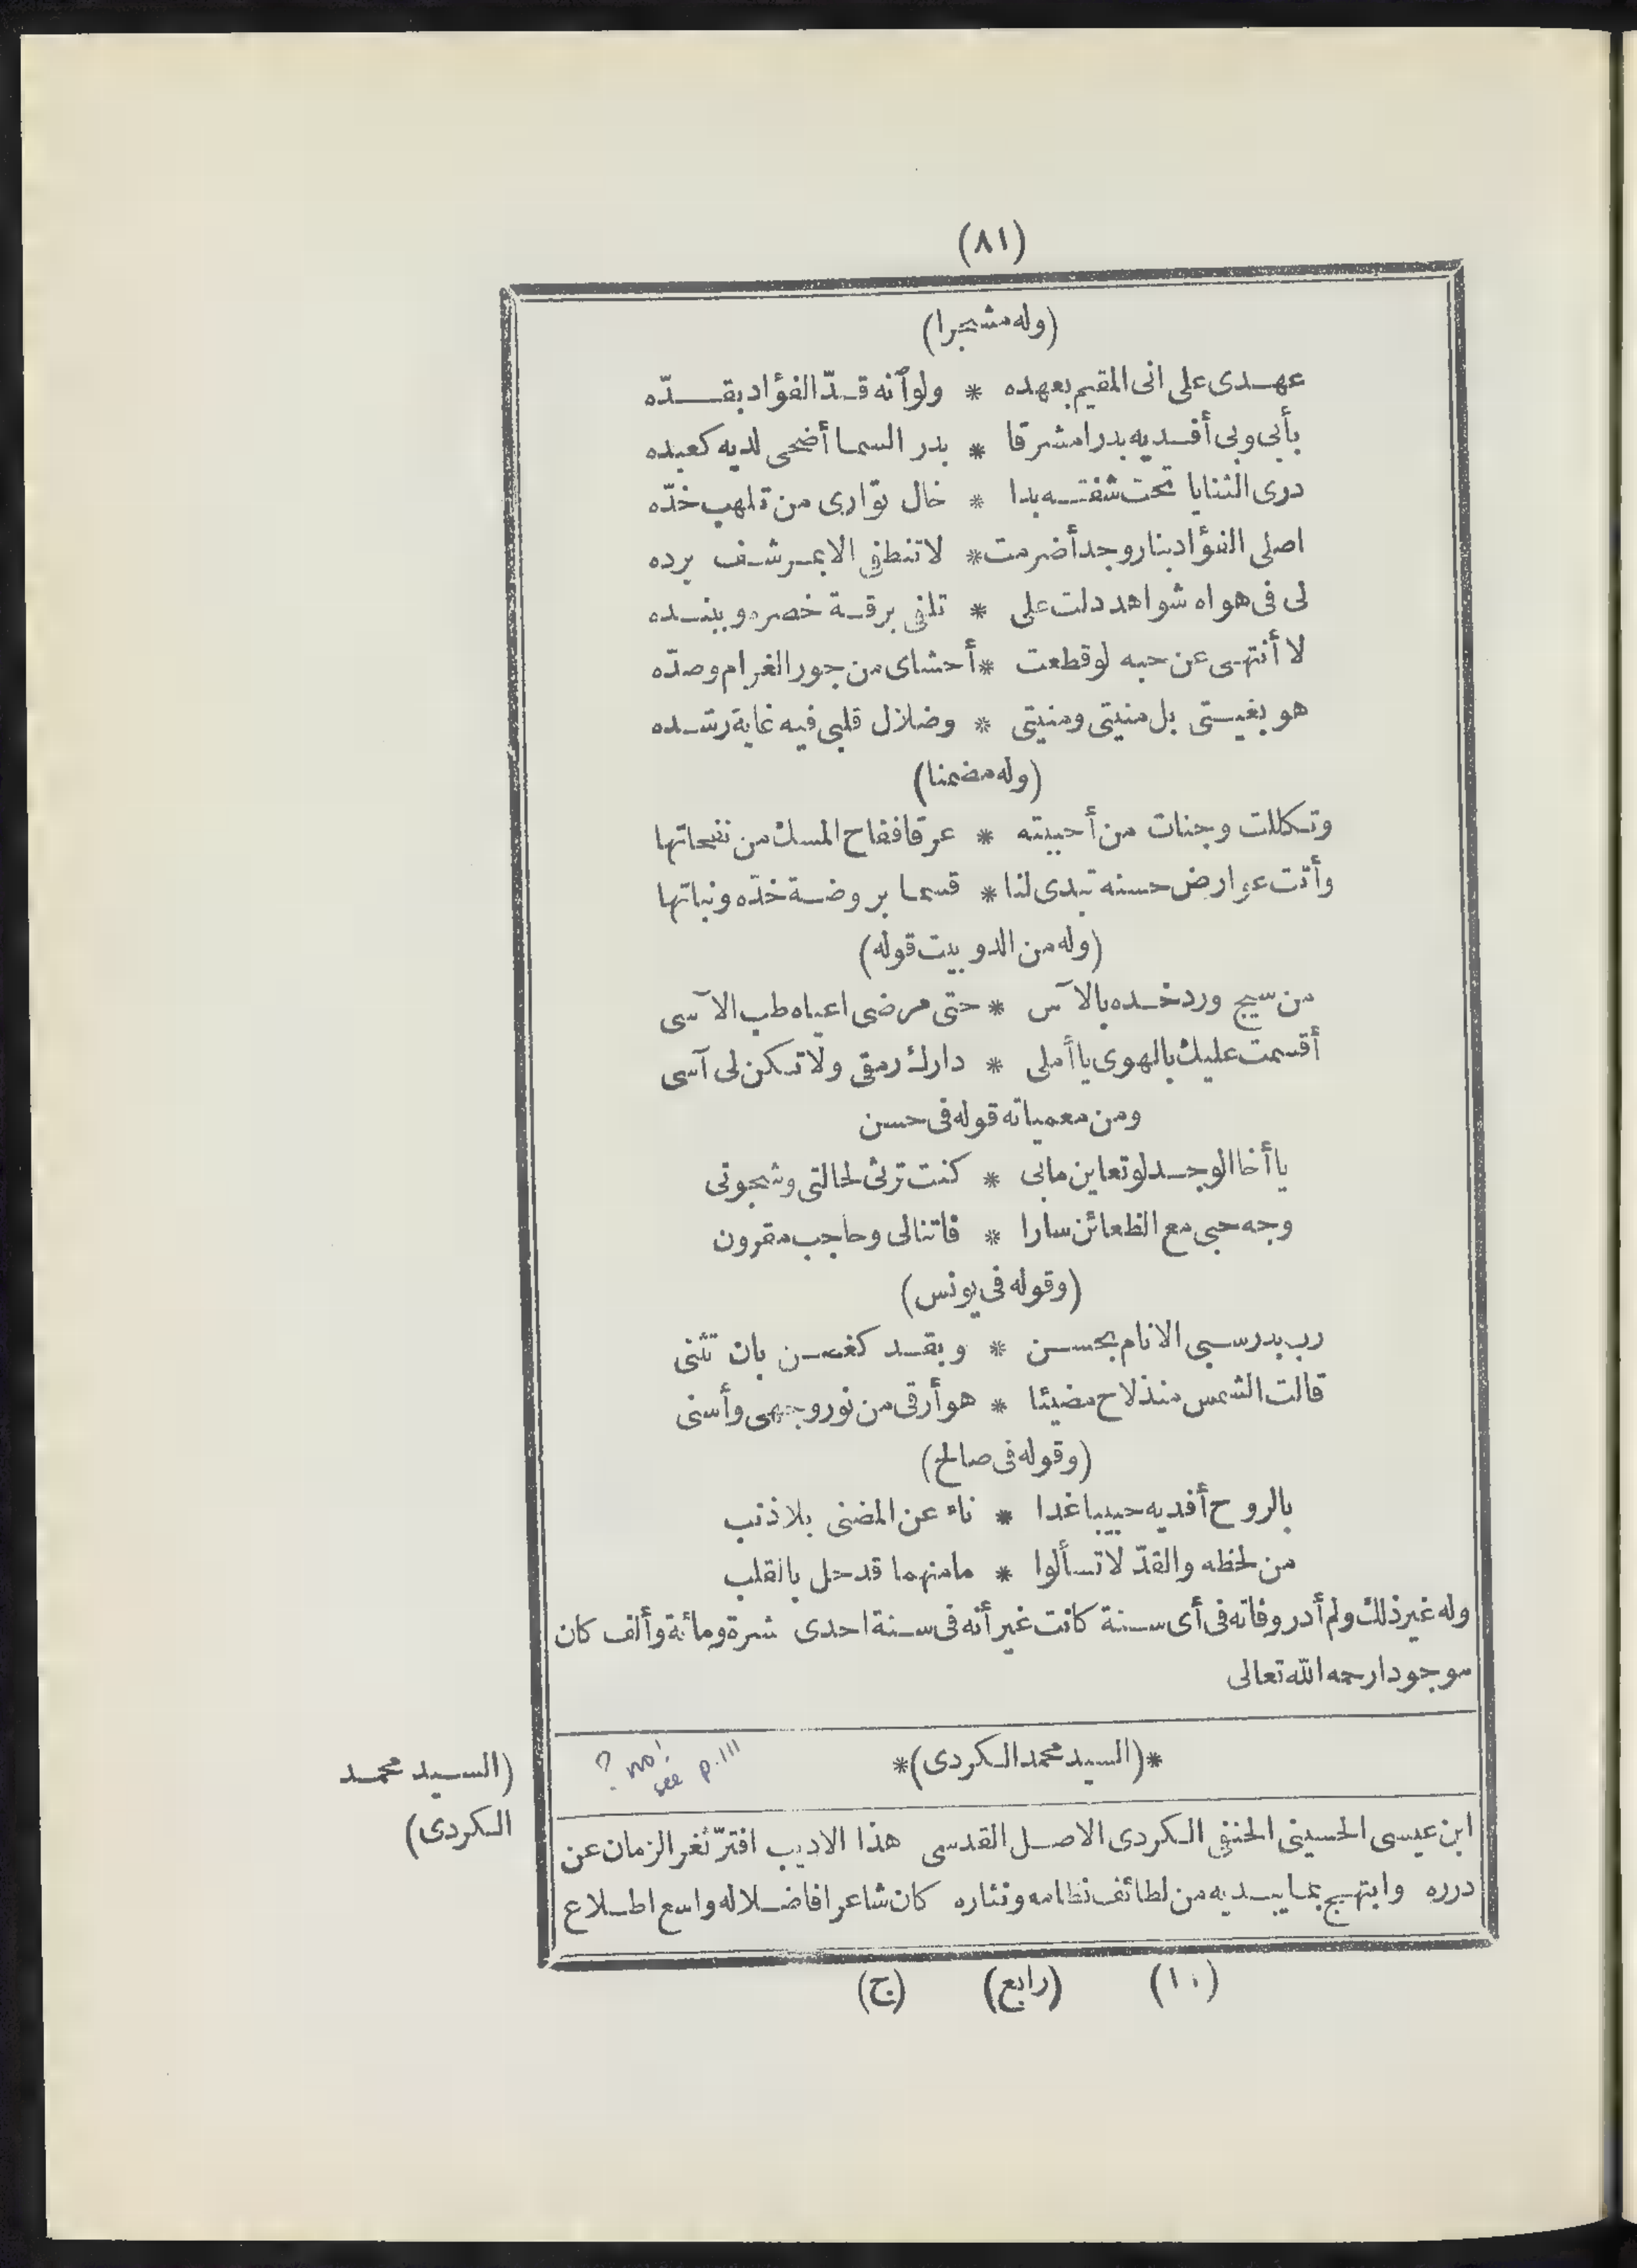 (٨١)
(وله مشجرا)
عهدى على انى المقيم بعهده * ولو أنه قدّ الفؤاد بقدّه
بأبى وبى أفديه بدرا مشرقا * بدر السما أضحى لديه كعبده
درى الثنايا تحت شفته بدا * خال توارى من تلهب خدّه
اصلى الفؤاد بنار وجد أضرمت * لا تنطفى الا بمرشف برده
لى فى هواه شواهد دلت على * تلفى برقة خصره وببنده
لا أنتهى عن حبه لو قطعت * أحشاى من جور الغرام وصدّه
هو بغيتى بل منيتى ومنيتى * وضلال قلبى فيه غاية رشده
(وله مضمنا)
وتكللت وجنات من أحببته * عرقا ففاح المسك من نفحاتها
وأتت عوارض حسنه تبدى لنا * قسما بروضة خدّه ونباتها
(وله من الدو بيت قوله)
من سيج ورد خده بالآس * حتى مرضى اعياه طب الآسى
أقسمت عليك بالهوى يا أملى * دارك رمقى ولا تكن لى آسى
ومن معمياته قوله فى حسن
يا أخا الوجد لو تعاين مابى * كنت ترثى لحالتى وشجونى
وجه حبى مع الظعائن سارا * فاتنالى وحاجب مقرون
(وقوله فى يونس)
رب بدر سبى الانام بحسن * وبقد كغصن بان تثنى
قالت الشمس منذ لاح مضيئا * هو أرقى من نور وجهى وأسنى
(وقوله فى صالح)
بالروح أفديه حبيبا غدا * ناء عن المضنى بلا ذنب
من لحظه والقدّ لا تسألوا * ما منهما قد حل بالقلب
وله غير ذلك ولم أدر وفاته فى أى سنة كانت غير أنه فى سنة احدى شرة ومائة وألف كان
موجودا رحمه الله تعالى
*(السيد محمد الكردى)*
? no! see p. 111
(السيد محمد
الكردى)
ابن عيسى الحسينى الحنفى الكردى الاصل القدسى هذا الاديب افترّ ثغر الزمان عن
درره وابتهج بما يبديه من لطائف نظامه ونثاره كان شاعرا فاضلا له واسع اطلاع
(١٠) (رابع) (ج)